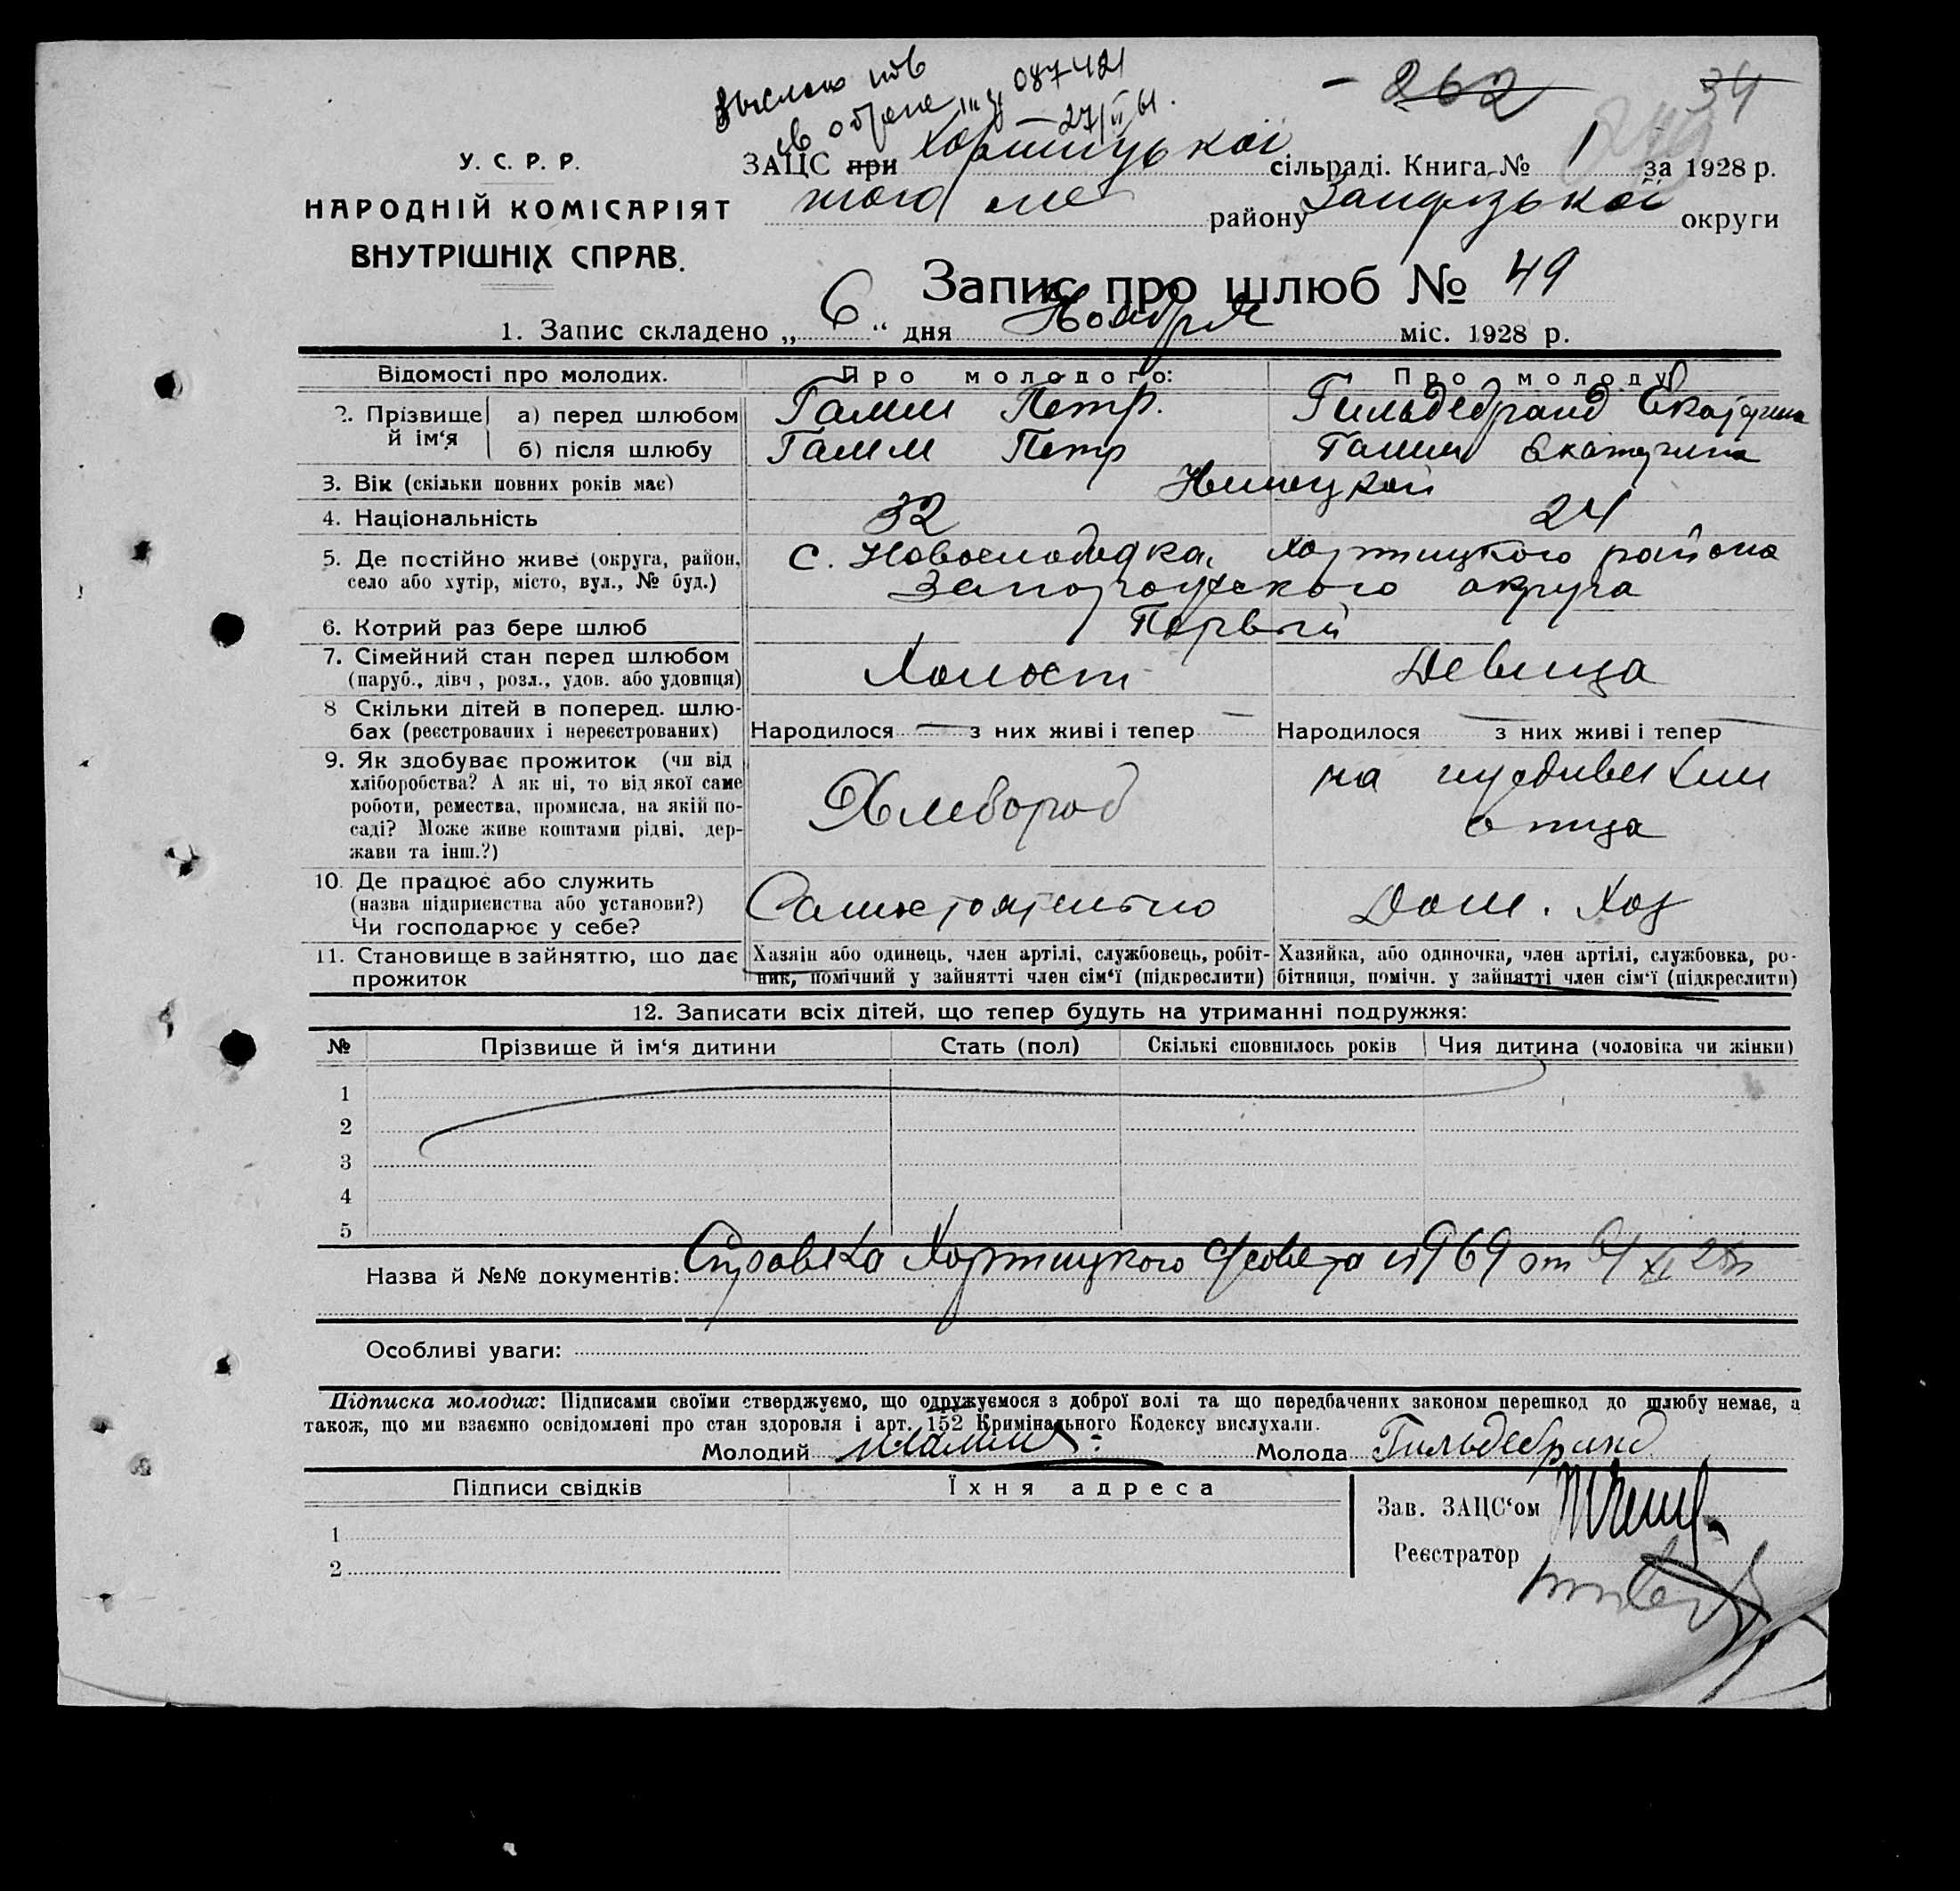 - 262 34
087421
27/II 61.
У. С. Р. Р.
НАРОДНІЙ КОМІСАРІЯТ
ВНУТРІШНІХ СПРАВ.
ЗАЦС при Хортицької сільраді. Книга № 1 за 1928 р.
того же району Запорізької округи
Запис про шлюб № 49
1. Запис складено „ 6 “ дня Ноября міс. 1928 р.
Відомості про молодих. Про молодого: Про молоду:
2. Прізвище й ім‘я а) перед шлюбом Гамм Петр. Гильдебранд Екатерина
б) після шлюбу Гамм Петр Гамм Екатерина
3. Вік (скільки повних років має) Немецкой
4. Національність 32 24
5. Де постійно живе (округа, район, село або хутір, місто, вул., № буд.) с. Новослободка, Хортицкого района
Запорожского округа
6. Котрий раз бере шлюб Первый
7. Сімейний стан перед шлюбом Холост Девица
(паруб., дівч., розл., удов. або удовиця)
8 Скільки дітей в поперед. шлю-
бах (реєстрованих і нереєстрованих) Народилося — з них живі і тепер — Народилося — з них живі і тепер —
9. Як здобуває прожиток (чи від
хліборобства? А як ні, то від якої саме
роботи, ремества, промисла, на якій по-
саді? Може живе коштами рідні, дер-
жави та інш.?)
Хлебороб на иждивении
отца
10. Де працює або служить
(назва підприємства або установи?)
Чи господарює у себе?
Самостоятельно Дом. Хоз
11. Становище в зайняттю, що дає
прожиток
Хазяїн або одинець, член артілі, службовець, робіт-
ник, помічний у зайнятті член сім‘ї (підкреслити)
Хазяйка, або одиночка, член артілі, службовка, ро-
бітниця, помічн. у зайнятті член сім‘ї (підкреслити)
12. Записати всіх дітей, що тепер будуть на утриманні подружжя:
№ Прізвище й ім‘я дитини Стать (пол) Скількі сповнилось років Чия дитина (чоловіка чи жінки)
1
2
3
4
5
Назва й №№ документів: Справка Хортицкого с/совета №969 от
Особливі уваги:
Підписка молодих: Підписами своїми стверджуємо, що одружуємося з доброї волі та що передбачених законом перешкод до шлюбу немає, а
також, що ми взаємно освідомлені про стан здоровля і арт. 152 Кримінального Кодексу вислухали.
Молодий Молода Гильдебранд
Підписи свідків Їхня адреса
Зав. ЗАЦС‘ом
Реєстратор
1
2